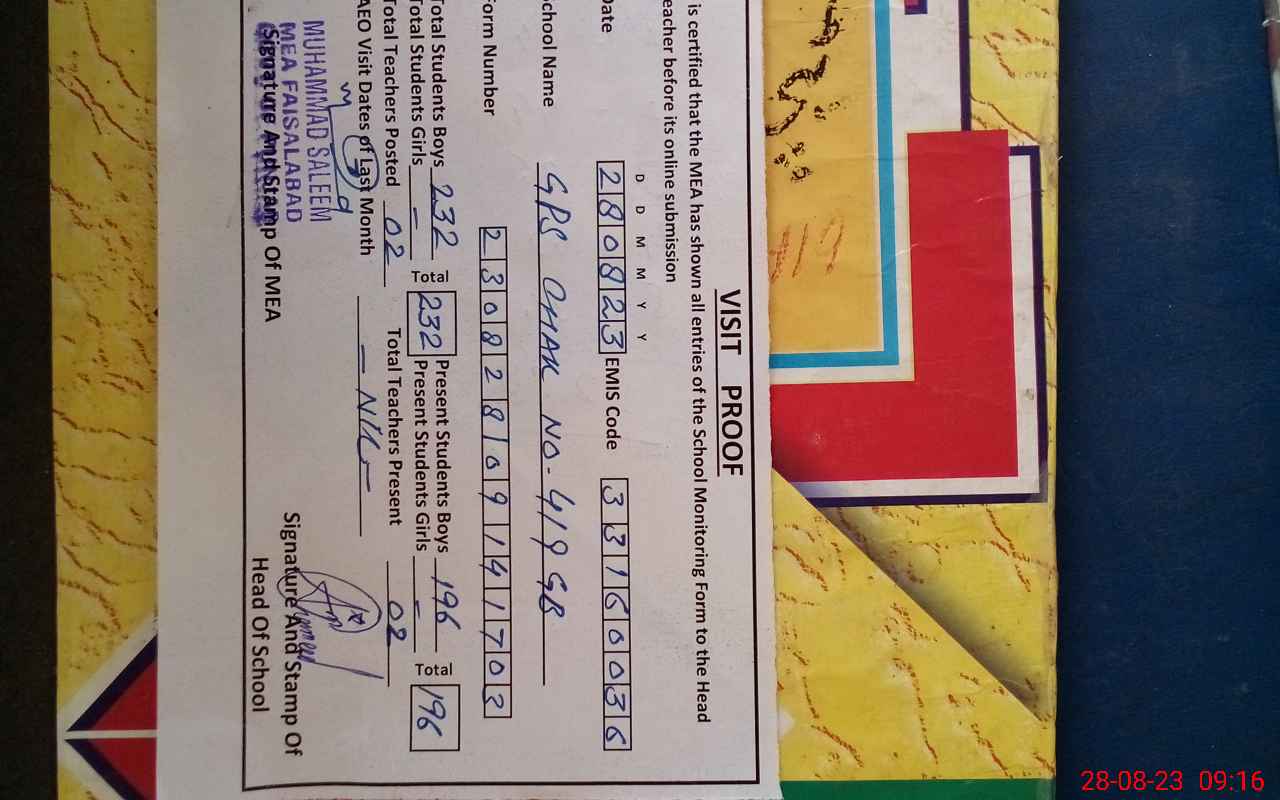 VISIT PROOF
is certified that the MEA has shown all entries of the School Monitoring Form to the Head
eacher before its online submission
D D M M Y Y
Date 280823 EMIS Code 33160036
School Name GPS CHAK NO-419 GB
Form Number 23082809141703
Total Students Boys 232 Total 232 Present Students Boys 196 Total 196
Total Students Girls - Present Students Girls -
Total Teachers Posted 02 Total Teachers Present 02
AEO Visit Dates of Last Month - Nil -
MUHAMMAD SALEEM
MEA FAISALABAD
Signature And Stamp Of MEA
Signature And Stamp Of
Head Of School
28-08-23 09:16